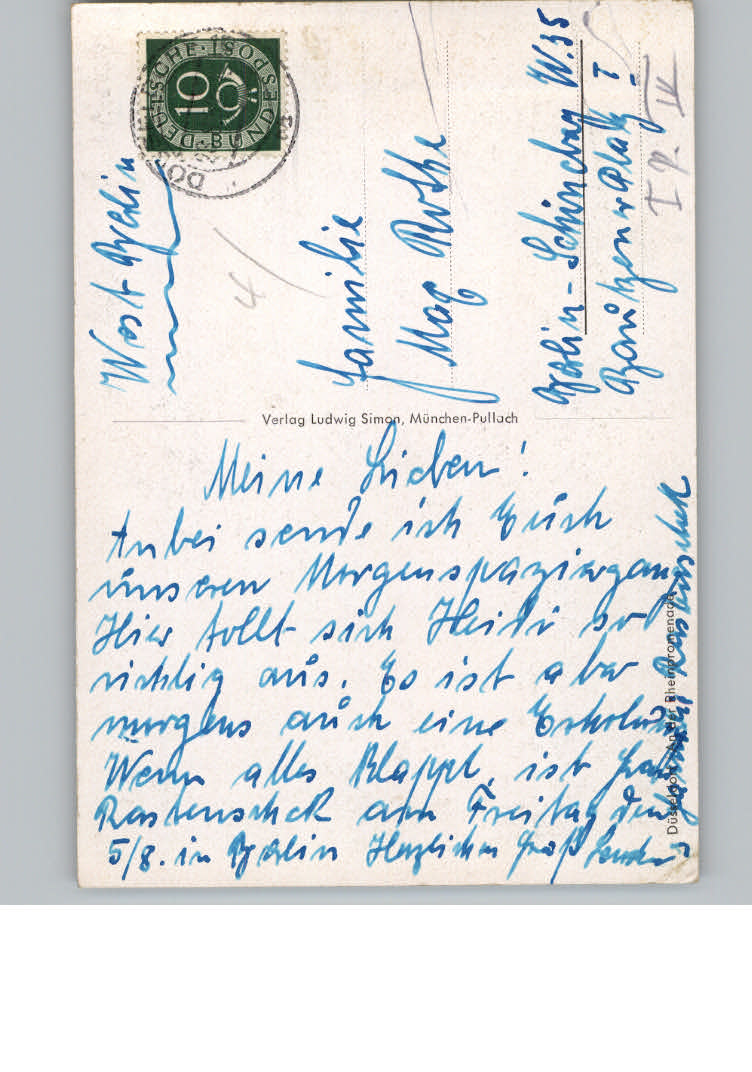 DEUTSCHE BUNDESPOST
10
West Berlin
Familie
Max Rothe
Berlin-Schöneberg W.35
Bautzener Platz
Verlag Ludwig Simon, München-Pullach
Meine Lieben!
Anbei sende ich Euch
unseren Morgenspaziergang
Hier tollt sich Heidi so
richtig aus. Es ist aber
morgens auch eine Erholung
Wenn alles klappt, ist
Rastenscheck am Freitag den
5/8. in Berlin Herzlichen Gruß
Rastenscheck
Düsseldorf, An der Rheinpromenade